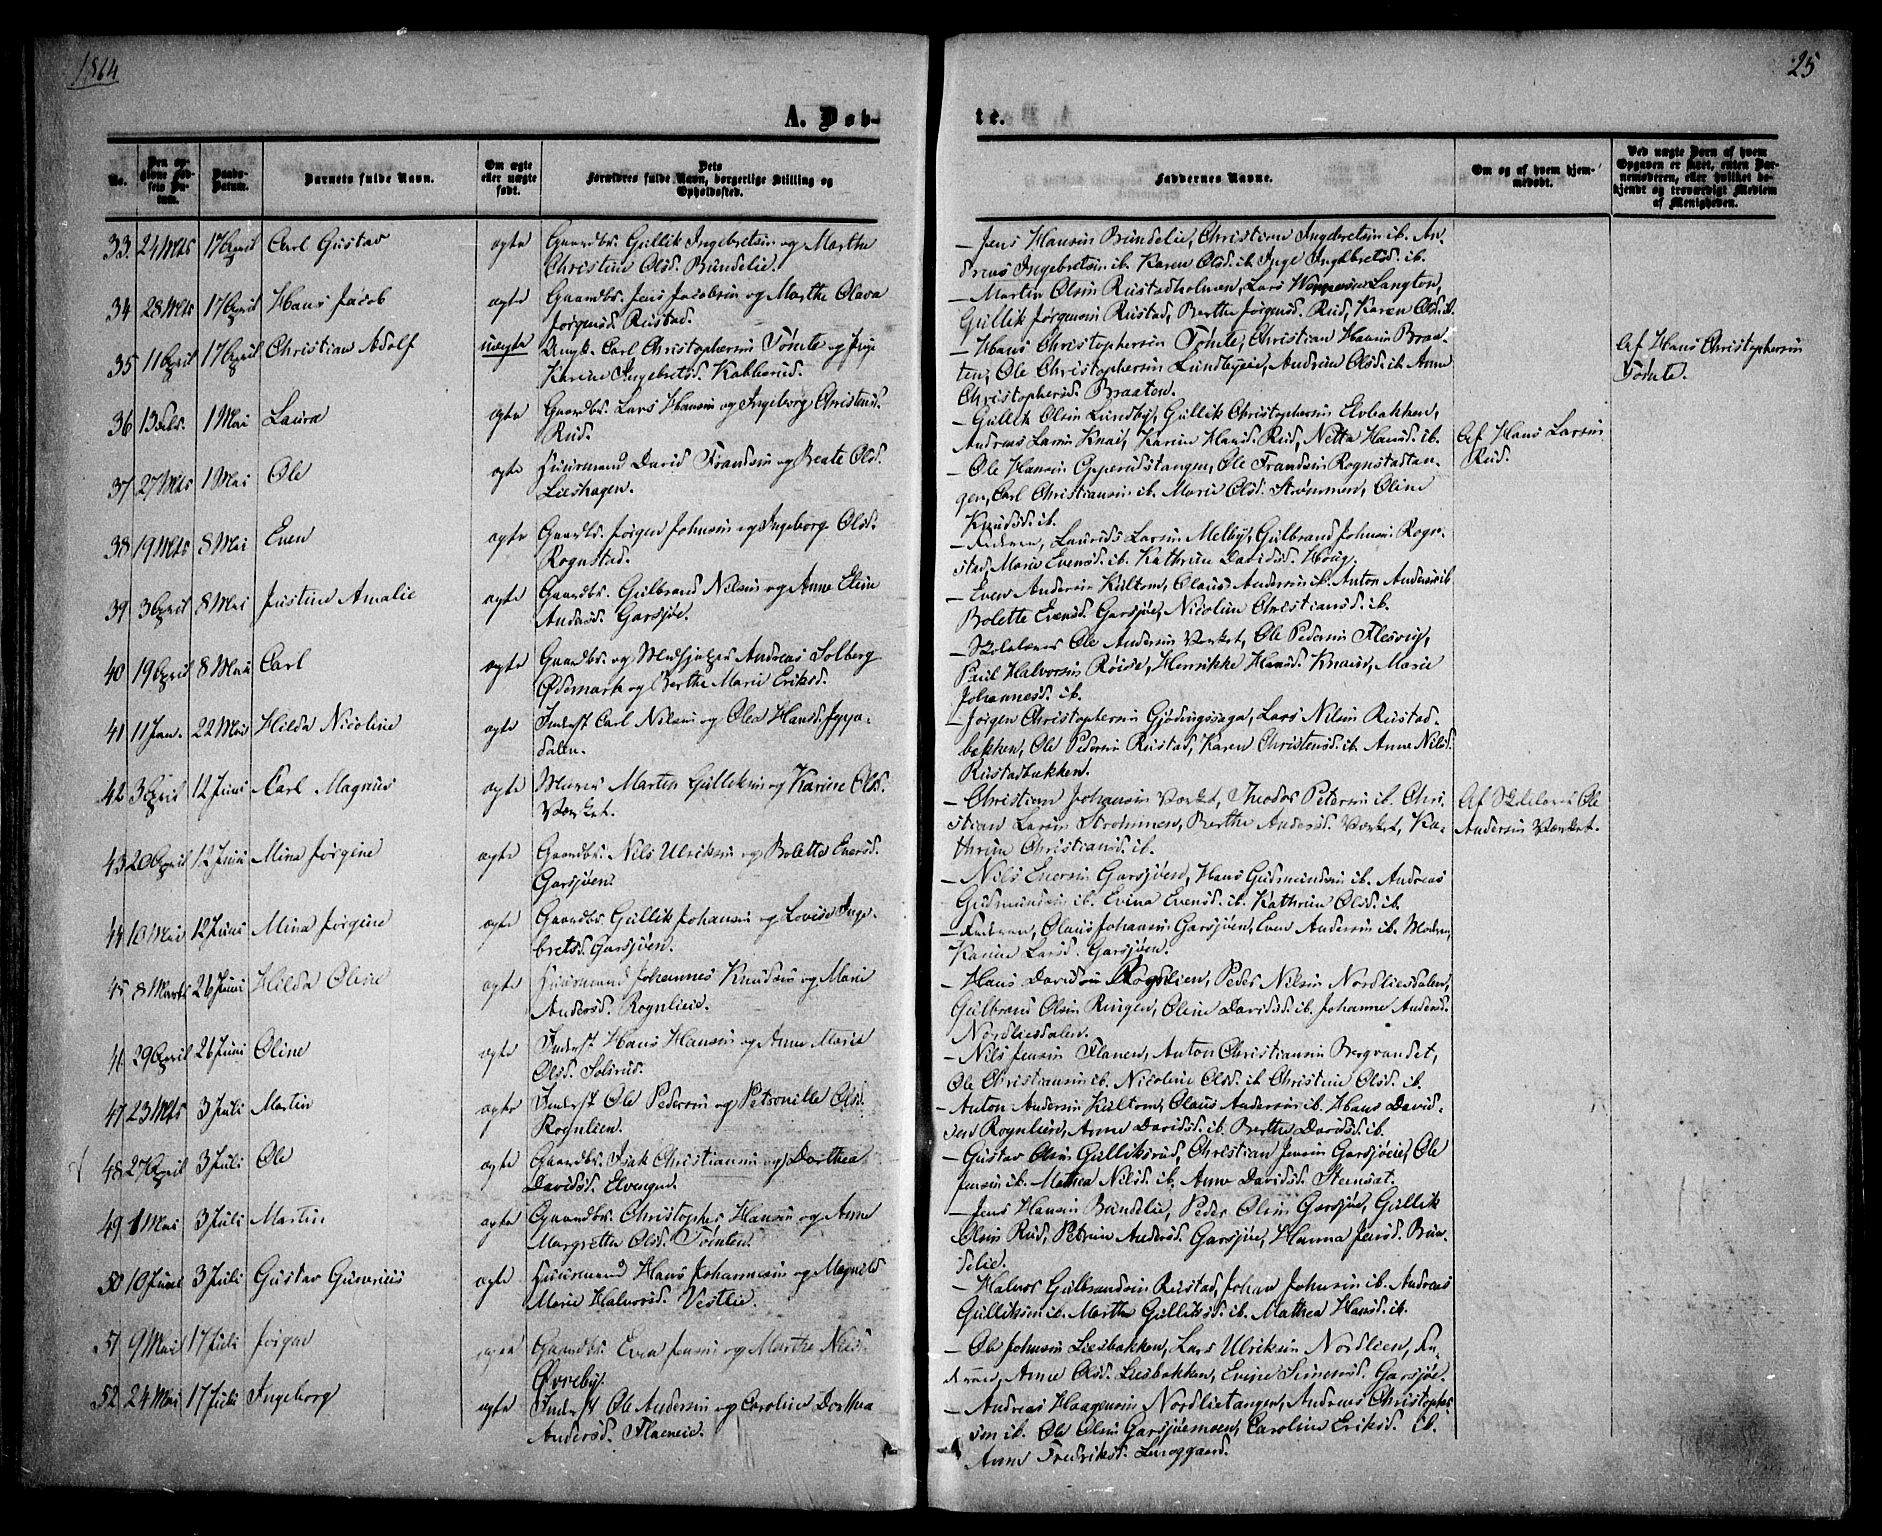 1864
25
A. Døb-
te.
No.
Den opgivne Fødsels Datum.
Daabs-Datum.
Barnets fulde Navn.
Om ægte eller uægte født.
Dets Forældres fulde Navn, borgerlige Stilling og Opholdssted.
Faddernes Navne.
Om og af hvem hjemmedøbt.
Ved uægte Barn af hvem Opgaven er sket, enten Barnemoderen, eller hvilket bekjendt og troværdigt Medlem af Menigheden.
33. 24 Mts 17 April Carl Gustav ægte Gaardbr. Gullik Ingebretsen og Marthe
Christine Olsd. Bundelie.
– Jens Hansen Bundelie, Christian Ingebretsen ib. An-
dreas Ingebretsen ib. Karen Olsd. ib. Inge Ingebretsd. ib.
34 28 Mts 17 April Hans Jacob ægte Gaardbr. Jens Jacobsen og Marthe Olava
Jørgensd. Rustad.
– Martin Olsen Rustadholmen, Lars Langton,
Gullik Jørgensen Rustad, Berthe Jørgensd. Rud, Karen Olsd. ib.
35 11 April 17 April Christian Adolf uægte Ungk. Carl Christophersen Tomte og Pige
Karine Ingebretsd. Kabberud.
– Hans Christophersen Tomte, Christian Hansen Braa-
ten, Ole Christophersen Lundbyeie, Andrine Olsd. ib. Anne
Christophersd. Braaten.
Af Hans Christophersen
Tomte.
36 13 Febr. 1 Mai Laura ægte Gaardbr. Lars Hansen og Ingeborg Christensd.
Rud.
– Gullik Olsen Lundby, Gullik Christophersen Elvbakken,
Andreas Larsen Knai, Karine Hansd. Rud, Netta Hansd. ib.
Af Hans Larsen
Rud.
37 27 Mts 1 Mai Ole ægte Huusmand David Frandsen og Beate Olsd.
Lieshagen.
– Ole Hansen Opperudstangen, Ole Frandsen Rognstadtan-
gen, Carl Christiansen ib. Marie Olsd. Strømmen, Oline
Knudsd. ib.
38 19 Mts 8 Mai Even ægte Gaardbr. Jørgen Johnsen og Ingeborg Olsd.
Rognstad.
– Faderen, Laurids Larsen Melby, Gulbrand Johnsen Rogn-
stad, Marie Evensd. ib. Kathrine Davidsd. Houg.
39 3 April 8 Mai Justine Amalie ægte Gaardbr. Gulbrand Nilsen og Anne Eline
Andersd. Garsjøe.
– Even Andersen Kultom, Olaus Andersen ib. Anton Andersen ib.
Bolette Evensd. Garsjøe, Nicoline Christiansd. ib.
40 19 April 8 Mai Carl ægte Gaardbr. og Medhjælper Andreas Solberg
Ødemark og Berthe Marie Eriksd.
– Skolelærer Ole Andersen Værket, Ole Pedersen Flesvig,
Paul Halvorsen Røise, Henrikke Hansd. Knaeie, Marie
Johannesd. ib.
41 11 Jan. 22 Mai Hilda Nicoline ægte Inderst Carl Nilsen og Olea Hansd. Jyppe-
dalen.
– Jørgen Christophersen Gjødingssaga, Lars Nilsen Rustad-
bakken, Ole Pedersen Rustad, Karen Christensd. ib. Anne Nilsd.
Rustadbakken.
42 3 April 12 Juni Carl Magnus ægte Murer Martin Gulliksen og Karine Olsd.
Værket.
– Christian Johansen Værket, Theodor Petersen ib. Chri-
stian Larsen Strømmen, Berthe Andersd. Værket, Ka-
thrine Christiansd. ib.
Af Skolelærer Ole
Andersen Værket.
43 20 April 12 Juni Mina Jørgine ægte Gaardbr. Nils Ulriksen og Bolette Enersd.
Garsjøen.
– Nils Enersen Garsjøen, Hans Gudmundsen ib. Andreas
Gudmundsen ib. Evina Evensd. ib. Kathrine Olsd. ib.
44 10 Mai 12 Juni Mina Jørgine ægte Gaardbr. Gullik Johansen og Lovise Inge-
bretsd. Garsjøen.
– Faderen, Olaus Johansen Garsjøen, Even Andersen ib. Moderen,
Karine Larsd. Garsjøen.
45 8 Marts 26 Juni Hilda Oline ægte Huusmand Johannes Knudsen og Marie
Andersd. Rognlieie.
– Hans Davidsen Rognlien, Peder Nilsen Nordliesdalen,
Gulbrand Olsen Ringen, Oline Davidsd. ib. Johanne Andersd.
Nordliesdalen.
46 29 April 26 Juni Oline ægte Inderst Hans Hansen og Anne Marie
Olsd. Solsrud.
– Nils Jensen Flanen, Anton Christiansen Bergvandet,
Ole Christiansen ib. Nicoline Olsd. ib. Christine Olsd. ib.
47 23 Mts 3 Juli Martin ægte Inderst Ole Pedersen og Petronille Olsd.
Rognlien.
– Anton Andersen Kultom, Olaus Andersen ib. Hans David-
sen Rognlien, Anne Davidsd. ib. Berthe Davidsd. ib.
48 27 April 3 Juli Ole ægte Gaardbr. Isak Christiansen og Dorthea
Davidsd. Elvengen.
– Gustav Olsen Gulliksrud, Christian Jensen Garsjøeie, Ole
Jensen ib. Mathea Nilsd. ib. Anne Davidsd. Steensæt.
49 1 Mai 3 Juli Martin ægte Gaardbr. Christopher Hansen og Anne
Margrethe Olsd. Tomten.
– Jens Hansen Bundelie, Peder Olsen Garsjøe, Gullik
Olsen Rud, Petrine Andersd. Garsjøe, Hanna Jensd. Bun-
delie.
50 10 Juni 3 Juli Gustav Gunerius ægte Huusmand Hans Johannesen og Magnild
Marie Halvorsd. Vestlie.
– Halvor Gulbrandsen Rustad, Johan Johnsen ib. Andreas
Gulliksen ib. Marthe Gulliksd. ib. Mathea Hansd. ib.
51 9 Mai 17 Juli Jørgen ægte Gaardbr. Even Jensen og Marthe Nilsd.
Øvreby.
– Ole Johnsen Liesbakken, Lars Ulriksen Nordlieen, Fa-
deren, Anne Olsd. Liesbakken, Evine Simensd. Garsjøe.
52 24 Mai 17 Juli Ingeborg ægte Inderst Ole Andersen og Caroline Dorthea
Andersd. Flaeneie.
– Andreas Haagensen Nordlietangen, Andreas Christopher-
sen ib. Ole Olsen Garsjøemoen, Caroline Eriksd. ib.
Anne Fredriksd.